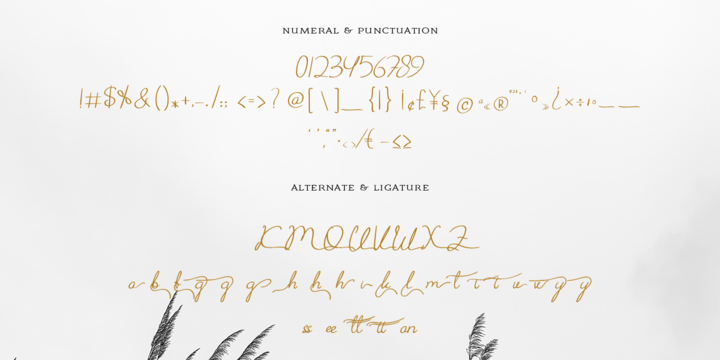 NUMERAL & PUNCTUATION
0123456789
!#$%&()*+,-./:; <=>? @[\]_ {|} ¡¢£¥§ © ® ° ¿×÷
/€ − ≤≥
ALTERNATE & LIGATURE
K M O U V W X Z
a b f g g g p h h h r k l m t t t u w y y
ss ee tt tt on